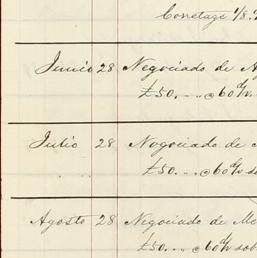 Corretage 1/8 %
Junio 28 Negociado de
£50.... @ 60 d/v
Julio 28 Nogociado de
£50... @ 60 d/v sob
Agosto 28 Negociado de
£50... @ 60 d/v sob